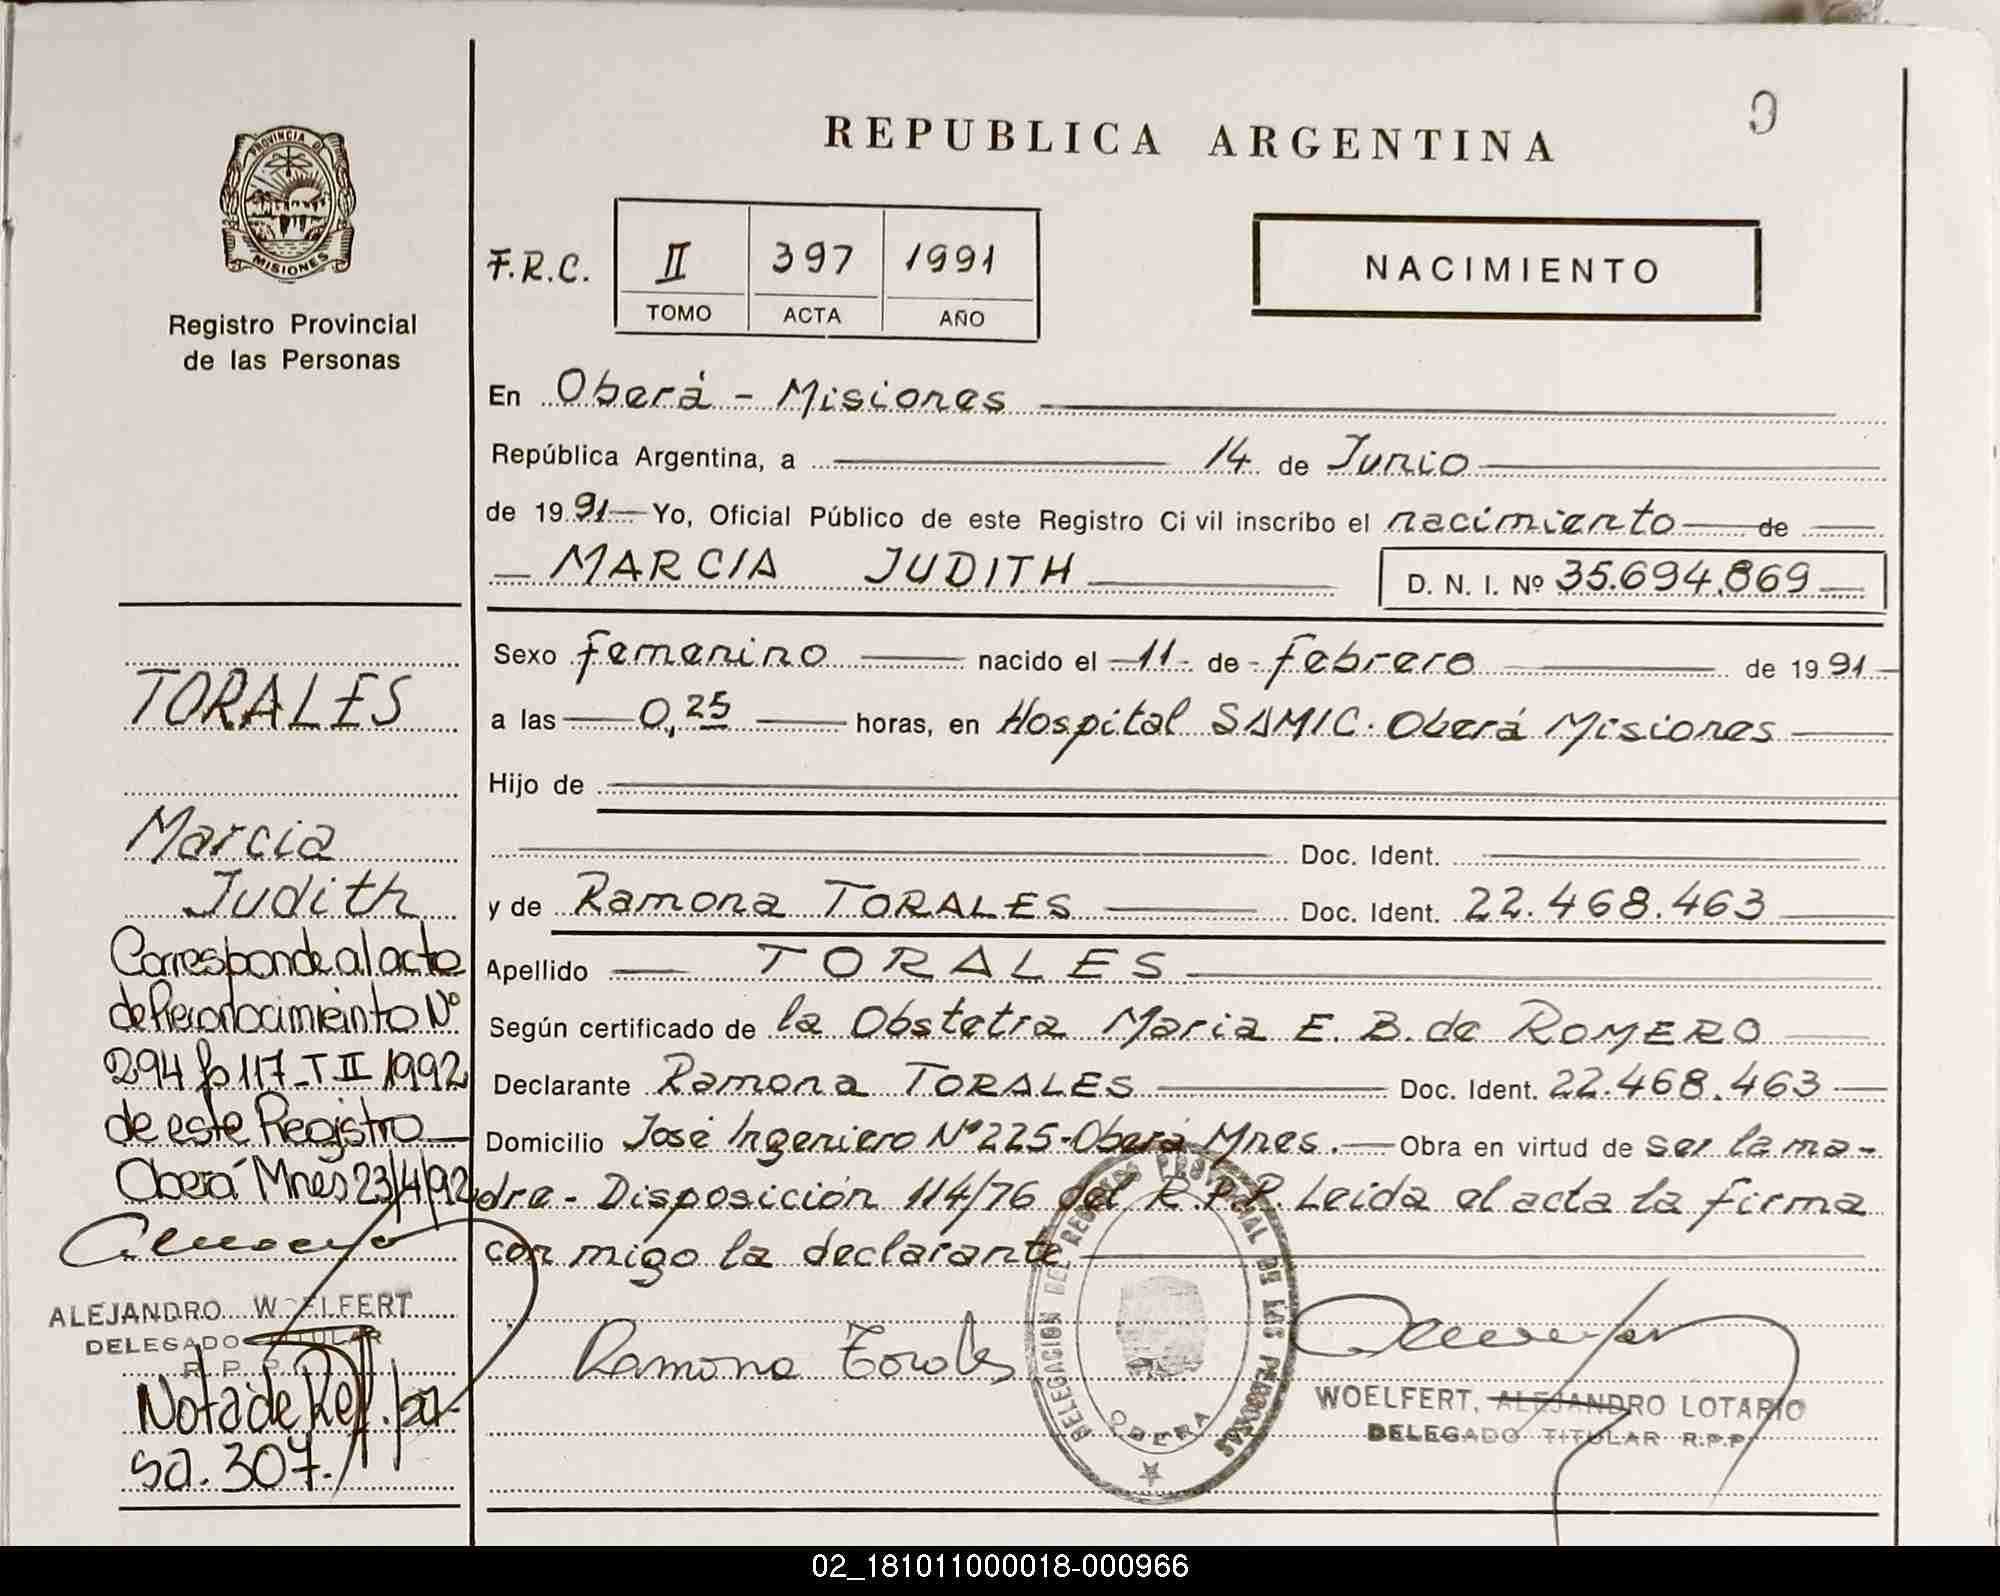 REPUBLICA ARGENTINA
PROVINCIA DE
MISIONES
Registro Provincial
de las Personas
F.R.C.
II 397 1991
TOMO ACTA AÑO
NACIMIENTO
En Oberá - Misiones
República Argentina, a 14 de Junio
de 19 91 Yo, Oficial Público de este Registro Civil inscribo el nacimiento de
MARCIA JUDITH D. N. I. Nº 35.694.869
Sexo femenino nacido el 11 de febrero de 19 91
a las 0,25 horas, en Hospital SAMIC. Oberá Misiones
Hijo de
Doc. Ident.
y de Ramona TORALES Doc. Ident. 22.468.463
Apellido TORALES
Según certificado de la Obstetra Maria E. B. de ROMERO
Declarante Ramona TORALES Doc. Ident. 22.468.463
Domicilio José Ingeniero Nº 225-Oberá Mnes. Obra en virtud de ser la ma-
dre - Disposición 114/76 del R.P.P. Leida el acta la firma
con migo la declarante
Ramona Torales
DELEGACION DEL REGISTRO PROVINCIAL DE LAS PERSONAS
OBERA
WOELFERT, ALEJANDRO LOTARIO
DELEGADO TITULAR R.P.P.
TORALES
Marcia
Judith
Corresponde al acta
de Reconocimiento Nº
294 fo 117 T II 1992
de este Registro
Oberá Mnes 23/4/92
ALEJANDRO WOELFERT
DELEGADO TITULAR
R. P. P.
Nota de Ref. pa-
sa. 307.
02_181011000018-000966